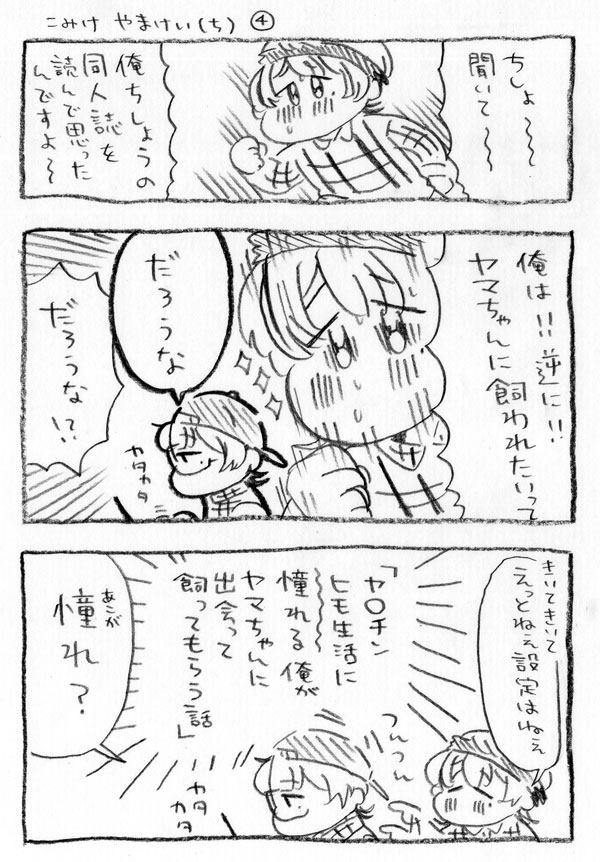 こみけ やまけい(ち) ④
ちょ〜〜
聞いて〜〜
俺ちしょうの
同人誌を
読んで思った
んですよ〜
俺は!!逆に!!
ヤマちゃんに飼われたいって
だろうな
だろうな!?
カタカタ
きいてきいて
えっとねぇ設定はねぇ
「ヤ〇チン
ヒモ生活に
憧れる俺が
ヤマちゃんに
出会って
飼ってもらう話」
つんつん
カタ
カタ
あこが
憧れ?